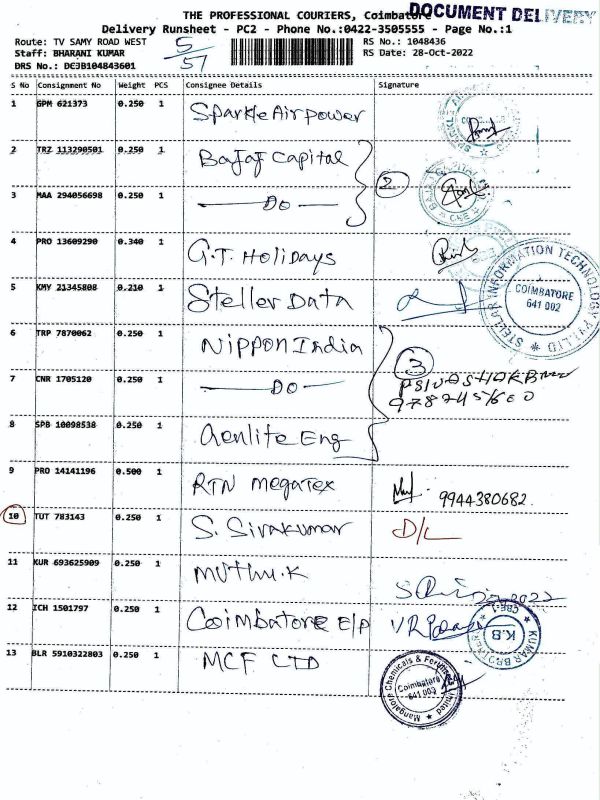 THE PROFESSIONAL COURIERS, Coimbatore
DOCUMENT DELIVERY
Delivery Runsheet - PC2 - Phone No.:0422-3505555 - Page No.:1
Route: TV SAMY ROAD WEST
5/57
RS No.: 1048436
Staff: BHARANI KUMAR
RS Date: 28-Oct-2022
DRS No.: DEJB104843601
S No Consignment No Weight PCS Consignee Details Signature
1 GPM 621373 0.250 1 Sparkle Airpower
2 TRZ 113290501 0.250 1 Bajaj Capital
2
3 MAA 294056698 0.250 1 Do
4 PRO 13609290 0.340 1 G.T. Holidays
5 KMY 21345808 0.210 1 Steller Data
STELLAR INFORMATION TECHNOLOGY PVT. LTD
COIMBATORE
641 002
6 TRP 7870062 0.250 1 Nippon India
3
7 CNR 1705120 0.250 1 Do
8 SPB 10098538 0.250 1 Aenlite Eng
9 PRO 14141196 0.500 1 RTN Megatex
9944380682
10 TUT 783143 0.250 1 S. Sivakumar D/L
11 KUR 693625909 0.250 1 Muthu.K
12 ICH 1501797 0.250 1 Coimbatore E/P
K.B
CBE-1
13 BLR 5910322803 0.250 1 MCF LTD
Mangalore Chemicals & Fertilizers Limited
Coimbatore
641 002